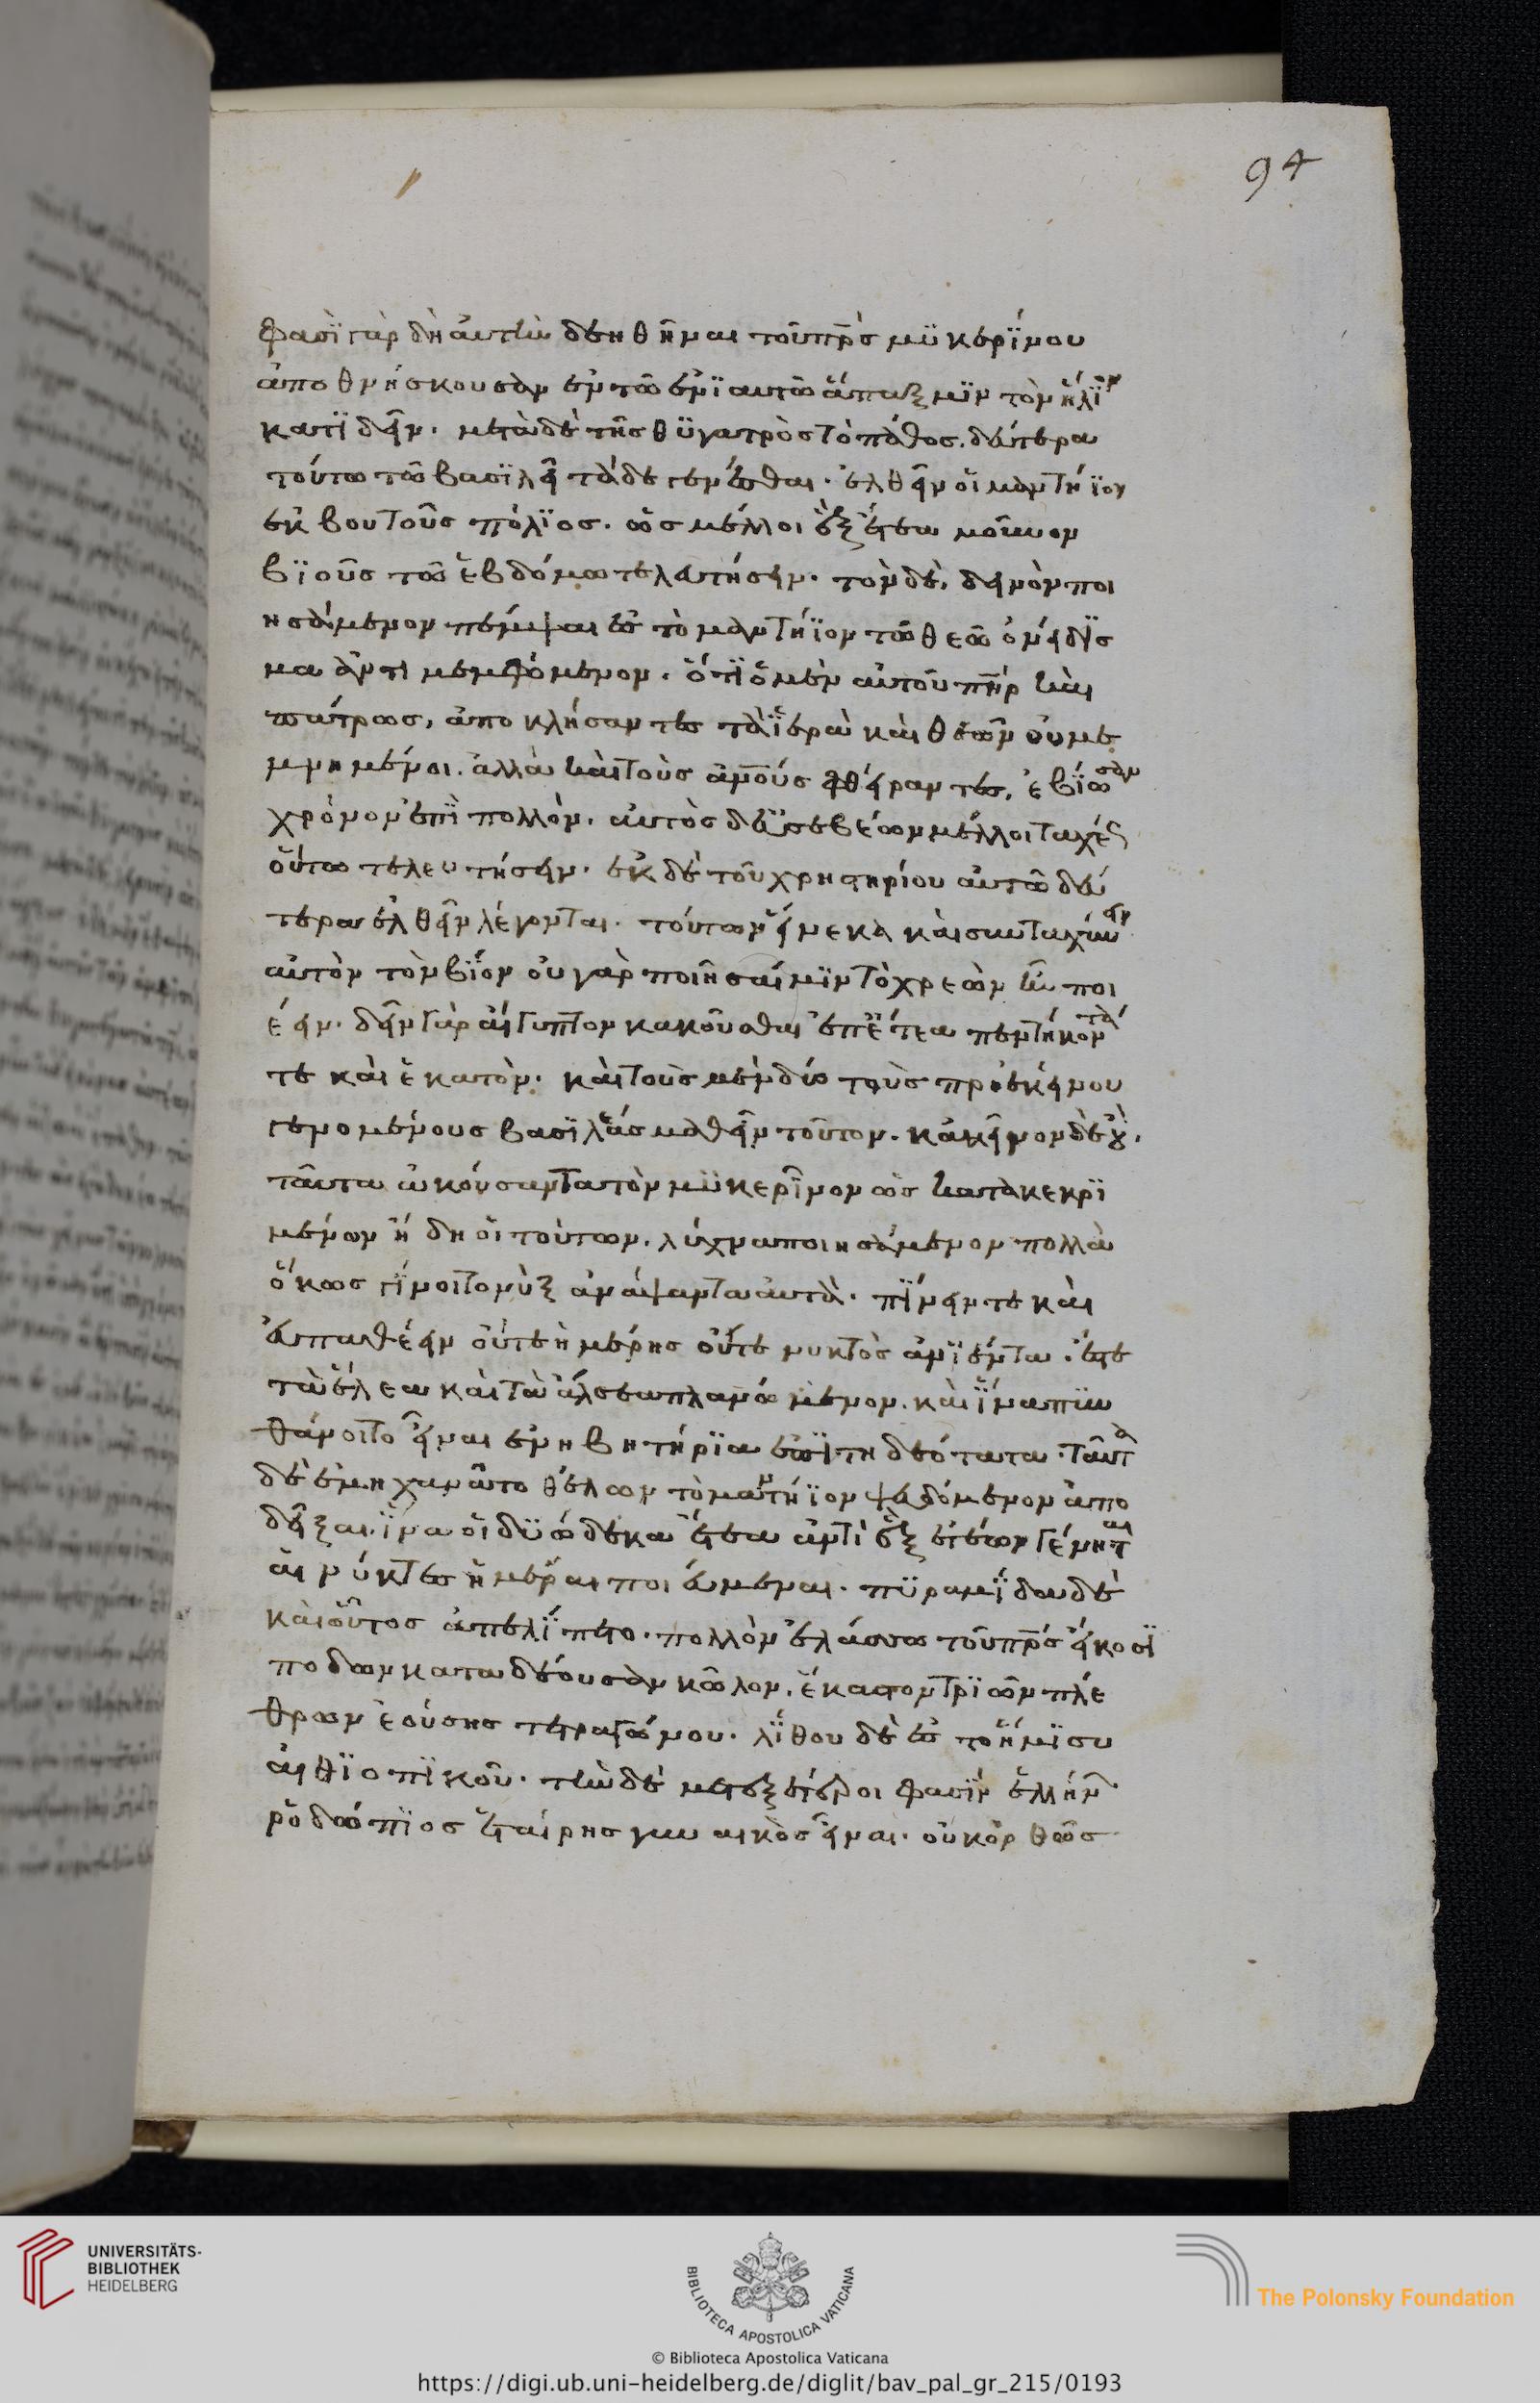 94
φασὶ γὰρ δὴ αὐτὴν δεηθῆναι τοῦ πρ̅ς μυκερίνου
ἀποθνήσκουσαν ἐν τῶ ἐνιαυτῶ ἅπαξ μιν τὸν ἥλιον
κατιδεῖν. μετὰ δὲ τῆς θυγατρὸς τὸ πάθος. δεύτερα
τούτω τῶ βασιλεῖ τάδε γενέσθαι. ἐλθεῖν οἱ μαντήιον
ἐκ βουτοῦς πόλιος. ὡς μέλλοι ἓξ ἔτεα μοῦνον
βιοὺς τῶ ἑβδόμω τελευτήσειν. τὸν δὲ, δεινὸν ποι
ησάμενον πέμψαι ἐς τὸ μαντήιον τῶ θεῶ ὀνείδισ
μα ἀντιμεμφόμενον. ὅτι ὁ μὲν αὐτοῦ πη̅ρ καὶ
πάτρως, ἀποκλήσαντες τὰ ἱερὰ καὶ θεῶν οὐ με
μνημένοι. ἀλλὰ καὶ τοὺς ἀν̅ους φθείραντες, ἐβίωσαν
χρόνον ἐπὶ πολλὸν. αὐτὸς δ' εὐσεβέων μέλλοι ταχέως
οὕτω τελευτήσειν. ἐκ δὲ τοῦ χρηστηρίου αὐτῶ δεύ
τερα ἐλθεῖν λέγονται. τούτων εἵνεκα καὶ συνταχύνειν
αὐτὸν τὸν βίον οὐ γὰρ ποιῆσαί μιν τὸ χρεὼν ἦν ποι
έειν. δεῖν γὰρ αἴγυπτον κακοῦσθαι ἐπ' ἔτεα πεντήκοντά
τε καὶ ἑκατὸν. καὶ τοὺς μὲν δύο τοὺς πρὸ ἐκείνου
γενομένους βασιλέας μαθεῖν τοῦτον. κἀκεῖνον δὲ οὒ.
ταῦτα ἀκούσαντα τὸν μυκερῖνον ὡς κατακεκρι
μένων ἤδη οἱ τούτων. λύχνα ποιησάμενον πολλὰ
ὅκως γίνοιτο νὺξ ἀνάψαντα αὐτὰ. πίνειν τε καὶ
εὐπαθέειν οὔτε ἡμέρης οὔτε νυκτὸς ἀνιέντα. ἔς τε
τὰ ἕλεα καὶ τὰ ἄλσεα πλανώμενον. καὶ ἵνα πυν
θάνοιτο εἶναι ἐνηβητήρια ἐπιτηδεότατα. ταῦτα
δὲ ἐμηχανᾶτο θέλων τὸ μαντήιον ψευδόμενον ἀπο
δεῖξαι. ἵνα οἱ δυώδεκα ἔτεα ἀντὶ ἓξ ἐτέων γένηται
αἱ νύκτες ἡμέραι ποιεύμεναι. πυραμίδα δὲ
καὶ οὗτος ἀπελίπετο. πολλὸν ἐλάσσω τοῦ πρ̅ς εἴκοσι
ποδῶν καταδέουσαν κῶλον, ἕκαστον τριῶν πλέ
θρων ἐούσης τετραγώνου. λίθου δὲ ἐς τὸ ἥμισυ
αἰθιοπικοῦ. τὴν δὲ μετεξέτεροι φασὶν ἑλλήνων
ῥοδώπιος ἑταίρης γυναικὸς εἶναι. οὐκ ὀρθῶς
UNIVERSITÄTS-
BIBLIOTHEK
HEIDELBERG
BIBLIOTECA APOSTOLICA VATICANA
The Polonsky Foundation
© Biblioteca Apostolica Vaticana
https://digi.ub.uni-heidelberg.de/diglit/bav_pal_gr_215/0193